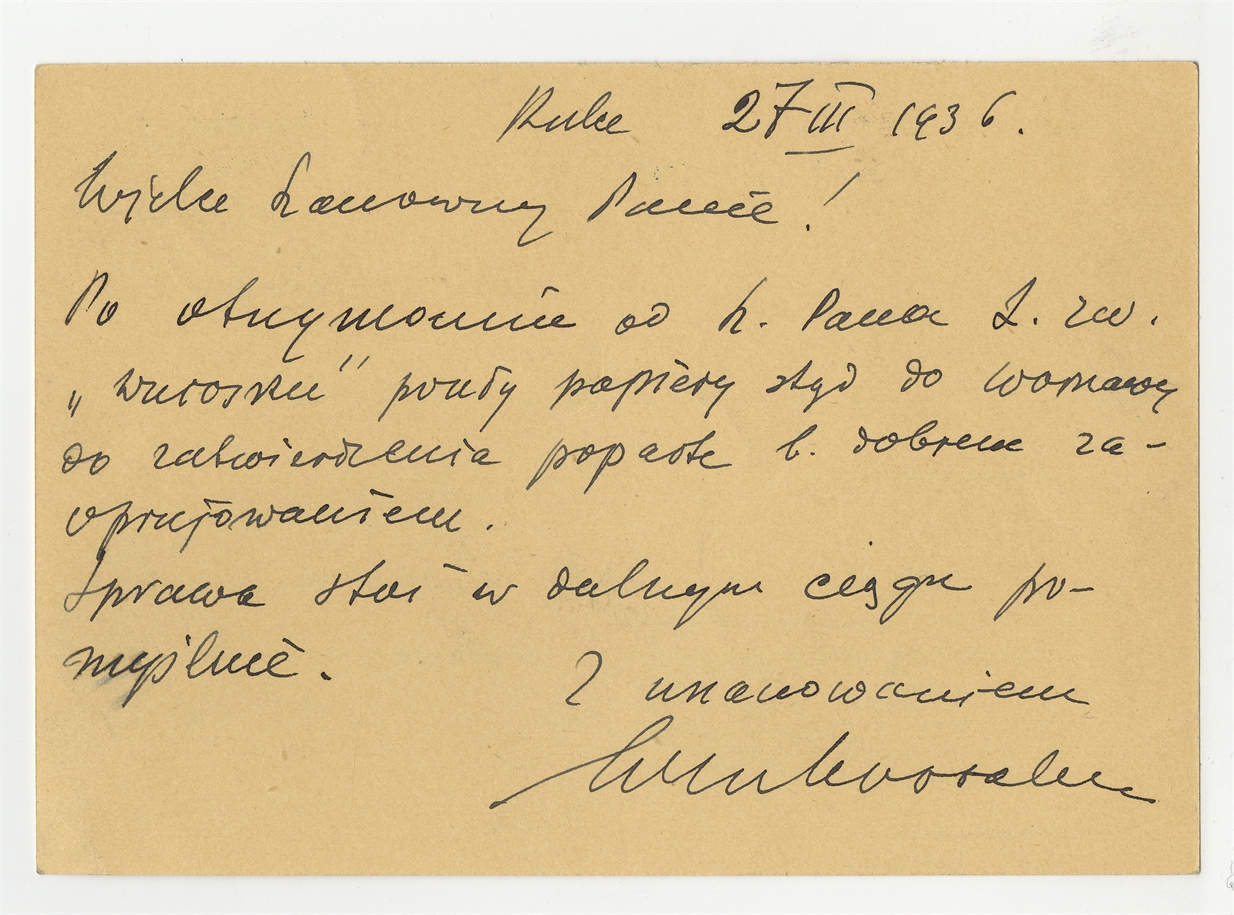 27 III 1936.
Wielce Szanowny Panie!
Po otrzymaniu od Sz. Pana t. zw.
„wniosku” poszły papiery stąd do Warszawy
do zatwierdzenia poparte b. dobrem za-
opinjowaniem.
Sprawa stoi w dalszym ciągu po-
myślnie.
Z uszanowaniem